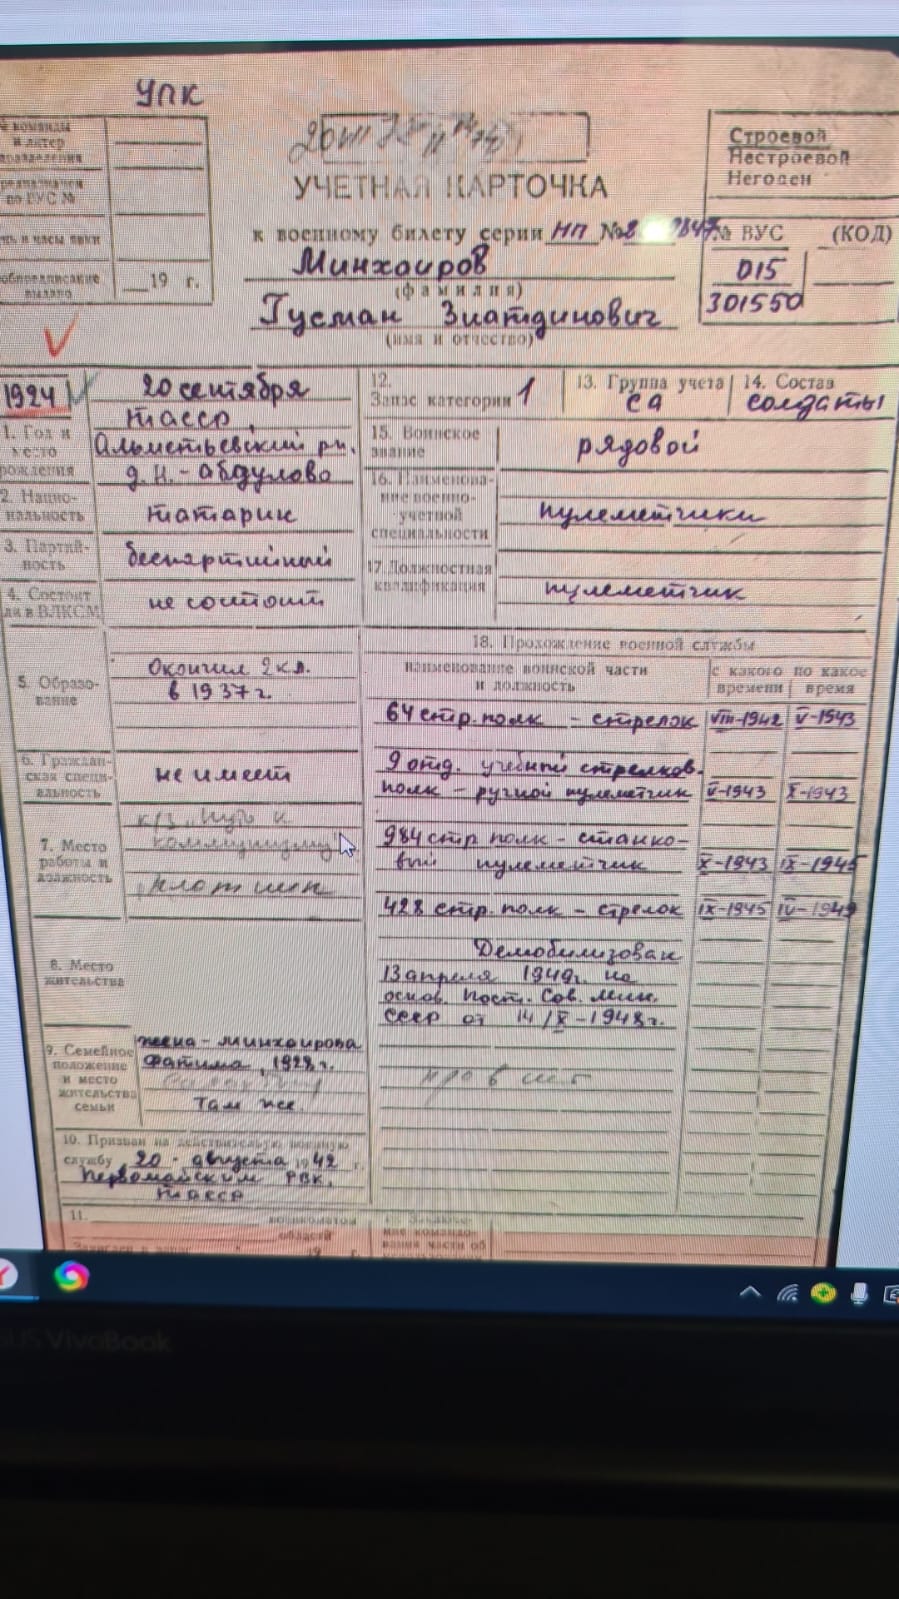 УПК
команды
и литер
УЧЕТНАЯ КАРТОЧКА
Строевой
Нестроевой
Негоден
к военному билету серии НП №
№ ВУС (КОД)
015
301550
19 г.
Минхаиров
(фамилия)
Гусман Зиатдинович
(имя и отчество)
1924
20 сентября
ТАССР,
Альметьевский рн.
д. Н.-Абдулово
1. Год и
место
рождения
2. Нацио-
нальность
татарин
3. Партий-
ность
беспартийный
4. Состоит
ли в ВЛКСМ
не состоит
5. Образо-
вание
Окончил 2 кл.
в 1937 г.
6. Граждан-
ская специ-
альность
не имеет
7. Место
работы и
должность
к/з "Путь к
коммунизму"
плотник
8. Место
жительства
9. Семейное
положение
и место
жительства
семьи
жена - Минхаирова
Фатима, 1928 г.
там же.
10. Призван на действительную военную
службу 20 - августа 1942 г.
Первомайским РВК,
ТАССР
11.
военкоматом
области
12.
Запас категории 1
13. Группа учета
СА
14. Состав
солдаты
15. Воинское
звание
рядовой
16. Наименова-
ние военно-
учетной
специальности
пулеметчики
17. Должностная
квалификация
пулеметчик
18. Прохождение военной службы
наименование воинской части
и должность
с какого
времени
по какое
время
64 стр. полк - стрелок VIII-1942 V-1943
9 отд. учебный стрелков.
полк - ручной пулеметчик V-1943 X-1943
984 стр полк - станко-
вый пулеметчик X-1943 IX-1945
428 стр. полк - стрелок IX-1945 IV-1949
Демобилизован
13 апреля 1949 г. на
основ. Пост. Сов. Мин.
СССР от 14/X-1948 г.
ние командо-
вания части об
VivoBook